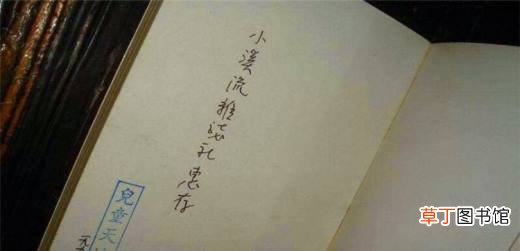 小溪流雜誌社 惠存
兒童天
草丁图书馆